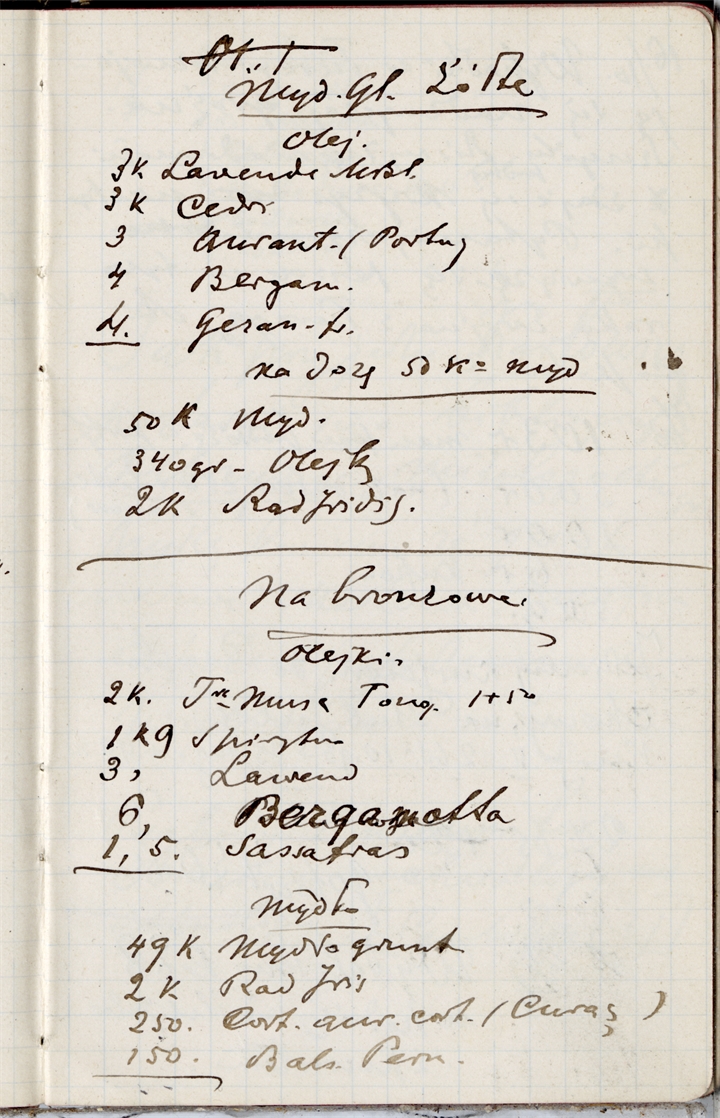 Myd. Gl. Żółte
Olej.
3K Lavende
3K Cedri
3 Aurant. (Portug
4 Bergam.
4. Geran.
na dozę 50 K= myd
50 K Myd.
340 gr - Olejk
2K Rad Jridis.
Na bronzowe.
Olejki.
2K. Tre Musc Tonq. 1+50
1 Kg Spirytu
3, Lawend
6, Bergamotta
1,5. Sassafras
mydło
49 K Mydło grunt
2 K Rad Jris
250. Cort. aur. cort. (Curaç )
150. Bals. Peru.